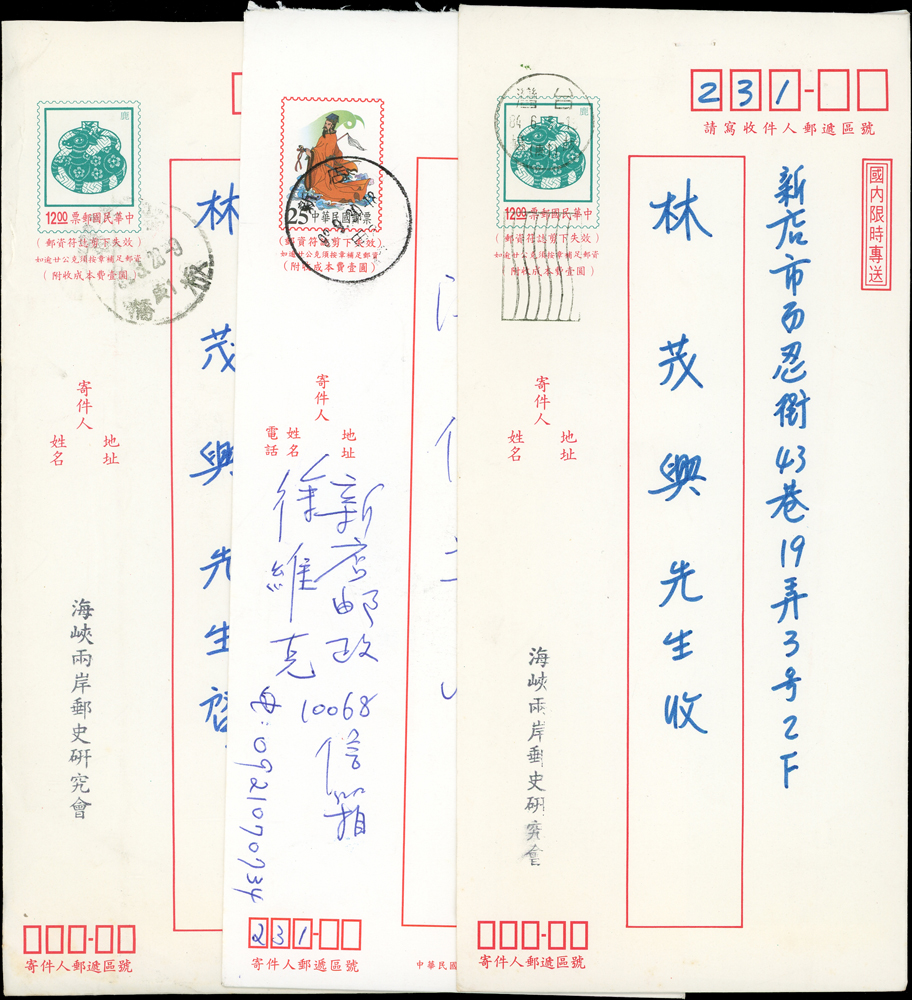 鹿
12.00 中華民國郵票
(郵資符誌剪下失效)
如逾廿公克須按章補足郵資
(附收成本費壹圓)
板橋
林茂興先生啓
寄件人
地址
姓名
海峽兩岸郵史研究會
寄件人郵遞區號
25 中華民國郵票
(郵資符誌剪下失效)
如逾廿公克須按章補足郵資
(附收成本費壹圓)
寄件人
地址
姓名
電話
新店郵政
10068
信箱
徐維克
0921070734
231
寄件人郵遞區號
中華民國
鹿
12.00 中華民國郵票
(郵資符誌剪下失效)
如逾廿公克須按章補足郵資
(附收成本費壹圓)
231
請寫收件人郵遞區號
國內限時專送
新店市 忍街43巷19弄3号2F
林茂興先生收
寄件人
地址
姓名
海峽兩岸郵史研究會
寄件人郵遞區號